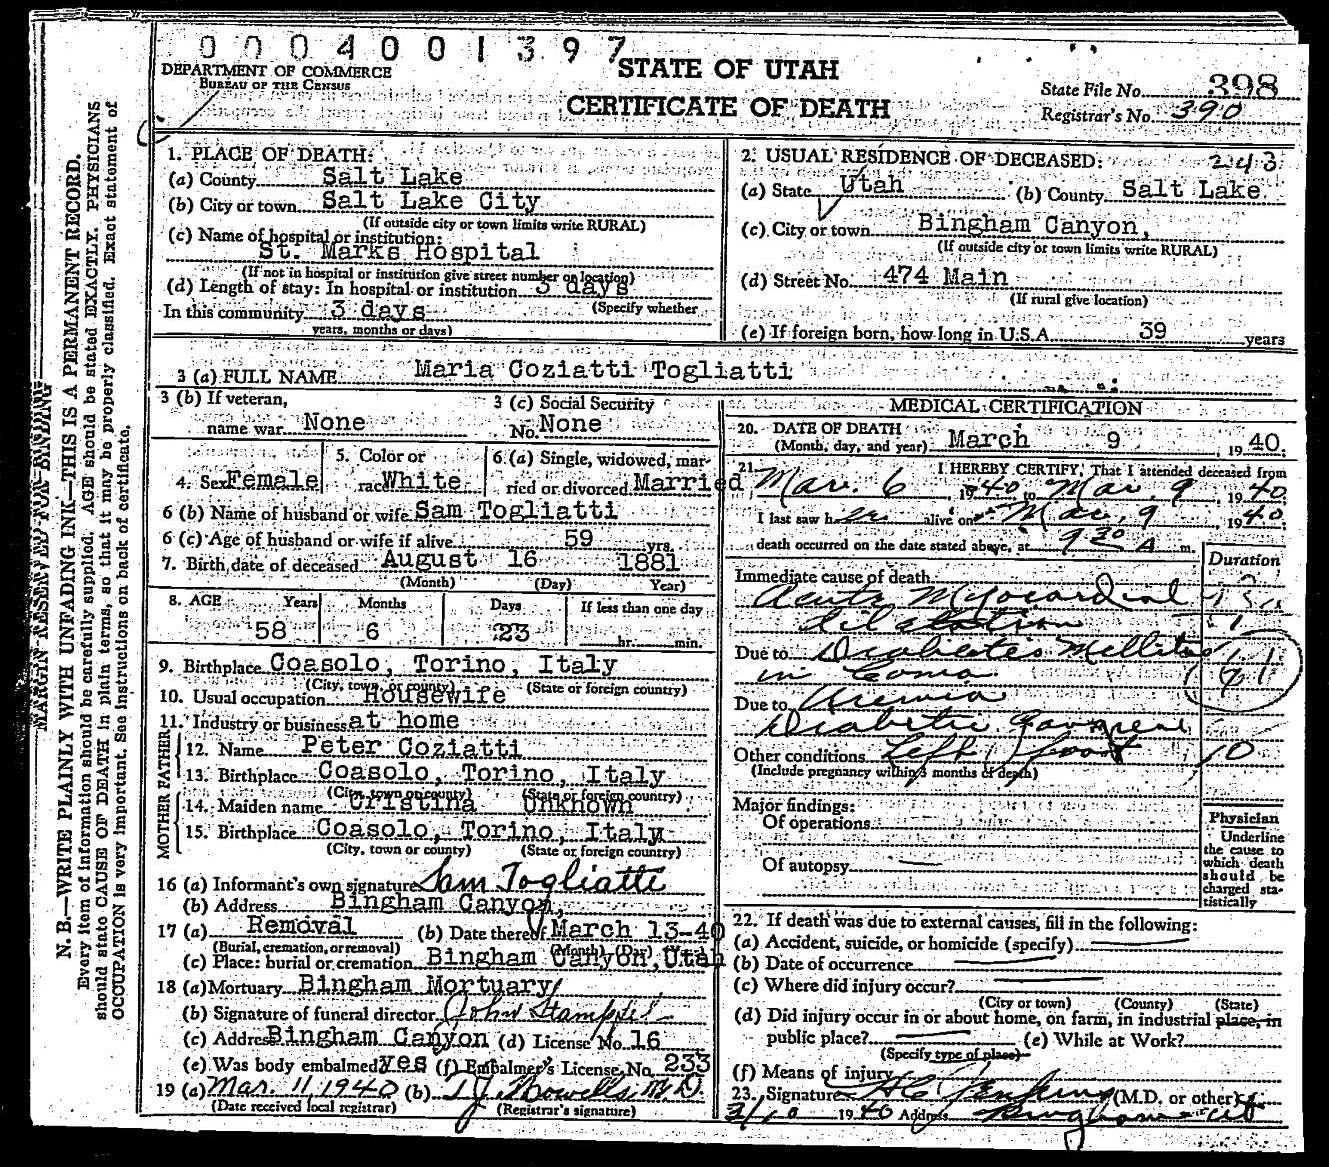 0004001397
DEPARTMENT OF COMMERCE
BUREAU OF THE CENSUS
STATE OF UTAH
CERTIFICATE OF DEATH
State File No. 398
Registrar's No. 390
1. PLACE OF DEATH:
(a) County Salt Lake
(b) City or town Salt Lake City
(If outside city or town limits write RURAL)
(c) Name of hospital or institution:
St. Marks Hospital
(If not in hospital or institution give street number or location)
(d) Length of stay: In hospital or institution 3 days
(Specify whether
In this community 3 days
years, months or days)
2. USUAL RESIDENCE OF DECEASED: 243
(a) State Utah (b) County Salt Lake
(c) City or town Bingham Canyon,
(If outside city or town limits write RURAL)
(d) Street No. 474 Main
(If rural give location)
(e) If foreign born, how long in U.S.A. 39 years
3 (a) FULL NAME Maria Coziatti Togliatti
3 (b) If veteran,
name war None
3 (c) Social Security
No. None
4. Sex Female
5. Color or
race White
6. (a) Single, widowed, mar-
ried or divorced Married
6 (b) Name of husband or wife Sam Togliatti
6 (c) Age of husband or wife if alive 59 yrs.
7. Birth date of deceased August 16 1881
(Month) (Day) Year)
8. AGE Years Months Days If less than one day
58 6 23 hr. min.
9. Birthplace Coasolo, Torino, Italy
(City, town or county) (State or foreign country)
10. Usual occupation Housewife
11. Industry or business at home
FATHER
12. Name Peter Coziatti
13. Birthplace Coasolo, Torino, Italy
(City, town or county) (State or foreign country)
MOTHER
14. Maiden name Cristina Unknown
15. Birthplace Coasolo, Torino, Italy
(City, town or county) (State or foreign country)
16 (a) Informant's own signature Sam Togliatti
(b) Address Bingham Canyon,
17 (a) Removal (b) Date thereof March 13-40
(Burial, cremation, or removal) (Month) (Day) (Year)
(c) Place: burial or cremation Bingham Canyon, Utah
18 (a) Mortuary Bingham Mortuary
(b) Signature of funeral director John Stampfel
(c) Address Bingham Canyon (d) License No. 16
(e) Was body embalmed yes (f) Embalmer's License, No. 233
19 (a) Mar. 11 1940 (b) T.J. Howells, M.D.
(Date received local registrar) (Registrar's signature)
MEDICAL CERTIFICATION
20. DATE OF DEATH
(Month, day, and year) March 9, 1940.
21. I HEREBY CERTIFY, That I attended deceased from
Mar. 6, 1940 to Mar. 9, 1940
I last saw her alive on Mar. 9 1940.
death occurred on the date stated above, at 9 30 A m.
Duration
Immediate cause of death
Acute Myocardial
dilatation
Due to Diabetes Mellitus
in Coma
61
Due to Uremia
Diabetic Gangrene
Other conditions Left foot 10
(Include pregnancy within 3 months of death)
Major findings:
Of operations
Of autopsy
Physician
Underline
the cause to
which death
should be
charged sta-
tistically
22. If death was due to external causes, fill in the following:
(a) Accident, suicide, or homicide (specify)
(b) Date of occurrence
(c) Where did injury occur?
(City or town) (County) (State)
(d) Did injury occur in or about home, on farm, in industrial place, in
public place? (e) While at Work?
(Specify type of place)
(f) Means of injury
23. Signature H C Jenkins (M.D. or other)
3/10 1940 Address Bingham Ut
MARGIN RESERVED FOR BINDING
N. B.—WRITE PLAINLY WITH UNFADING INK—THIS IS A PERMANENT RECORD.
Every item of information should be carefully supplied. AGE should be stated EXACTLY. PHYSICIANS
should state CAUSE OF DEATH in plain terms, so that it may be properly classified. Exact statement of
OCCUPATION is very important. See instructions on back of certificate.